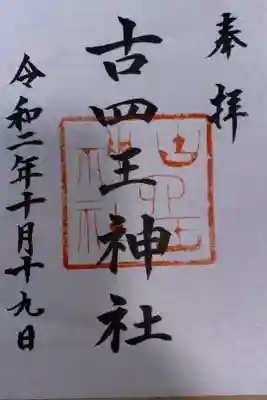 奉拝
古四王神社
令和二年十月十九日